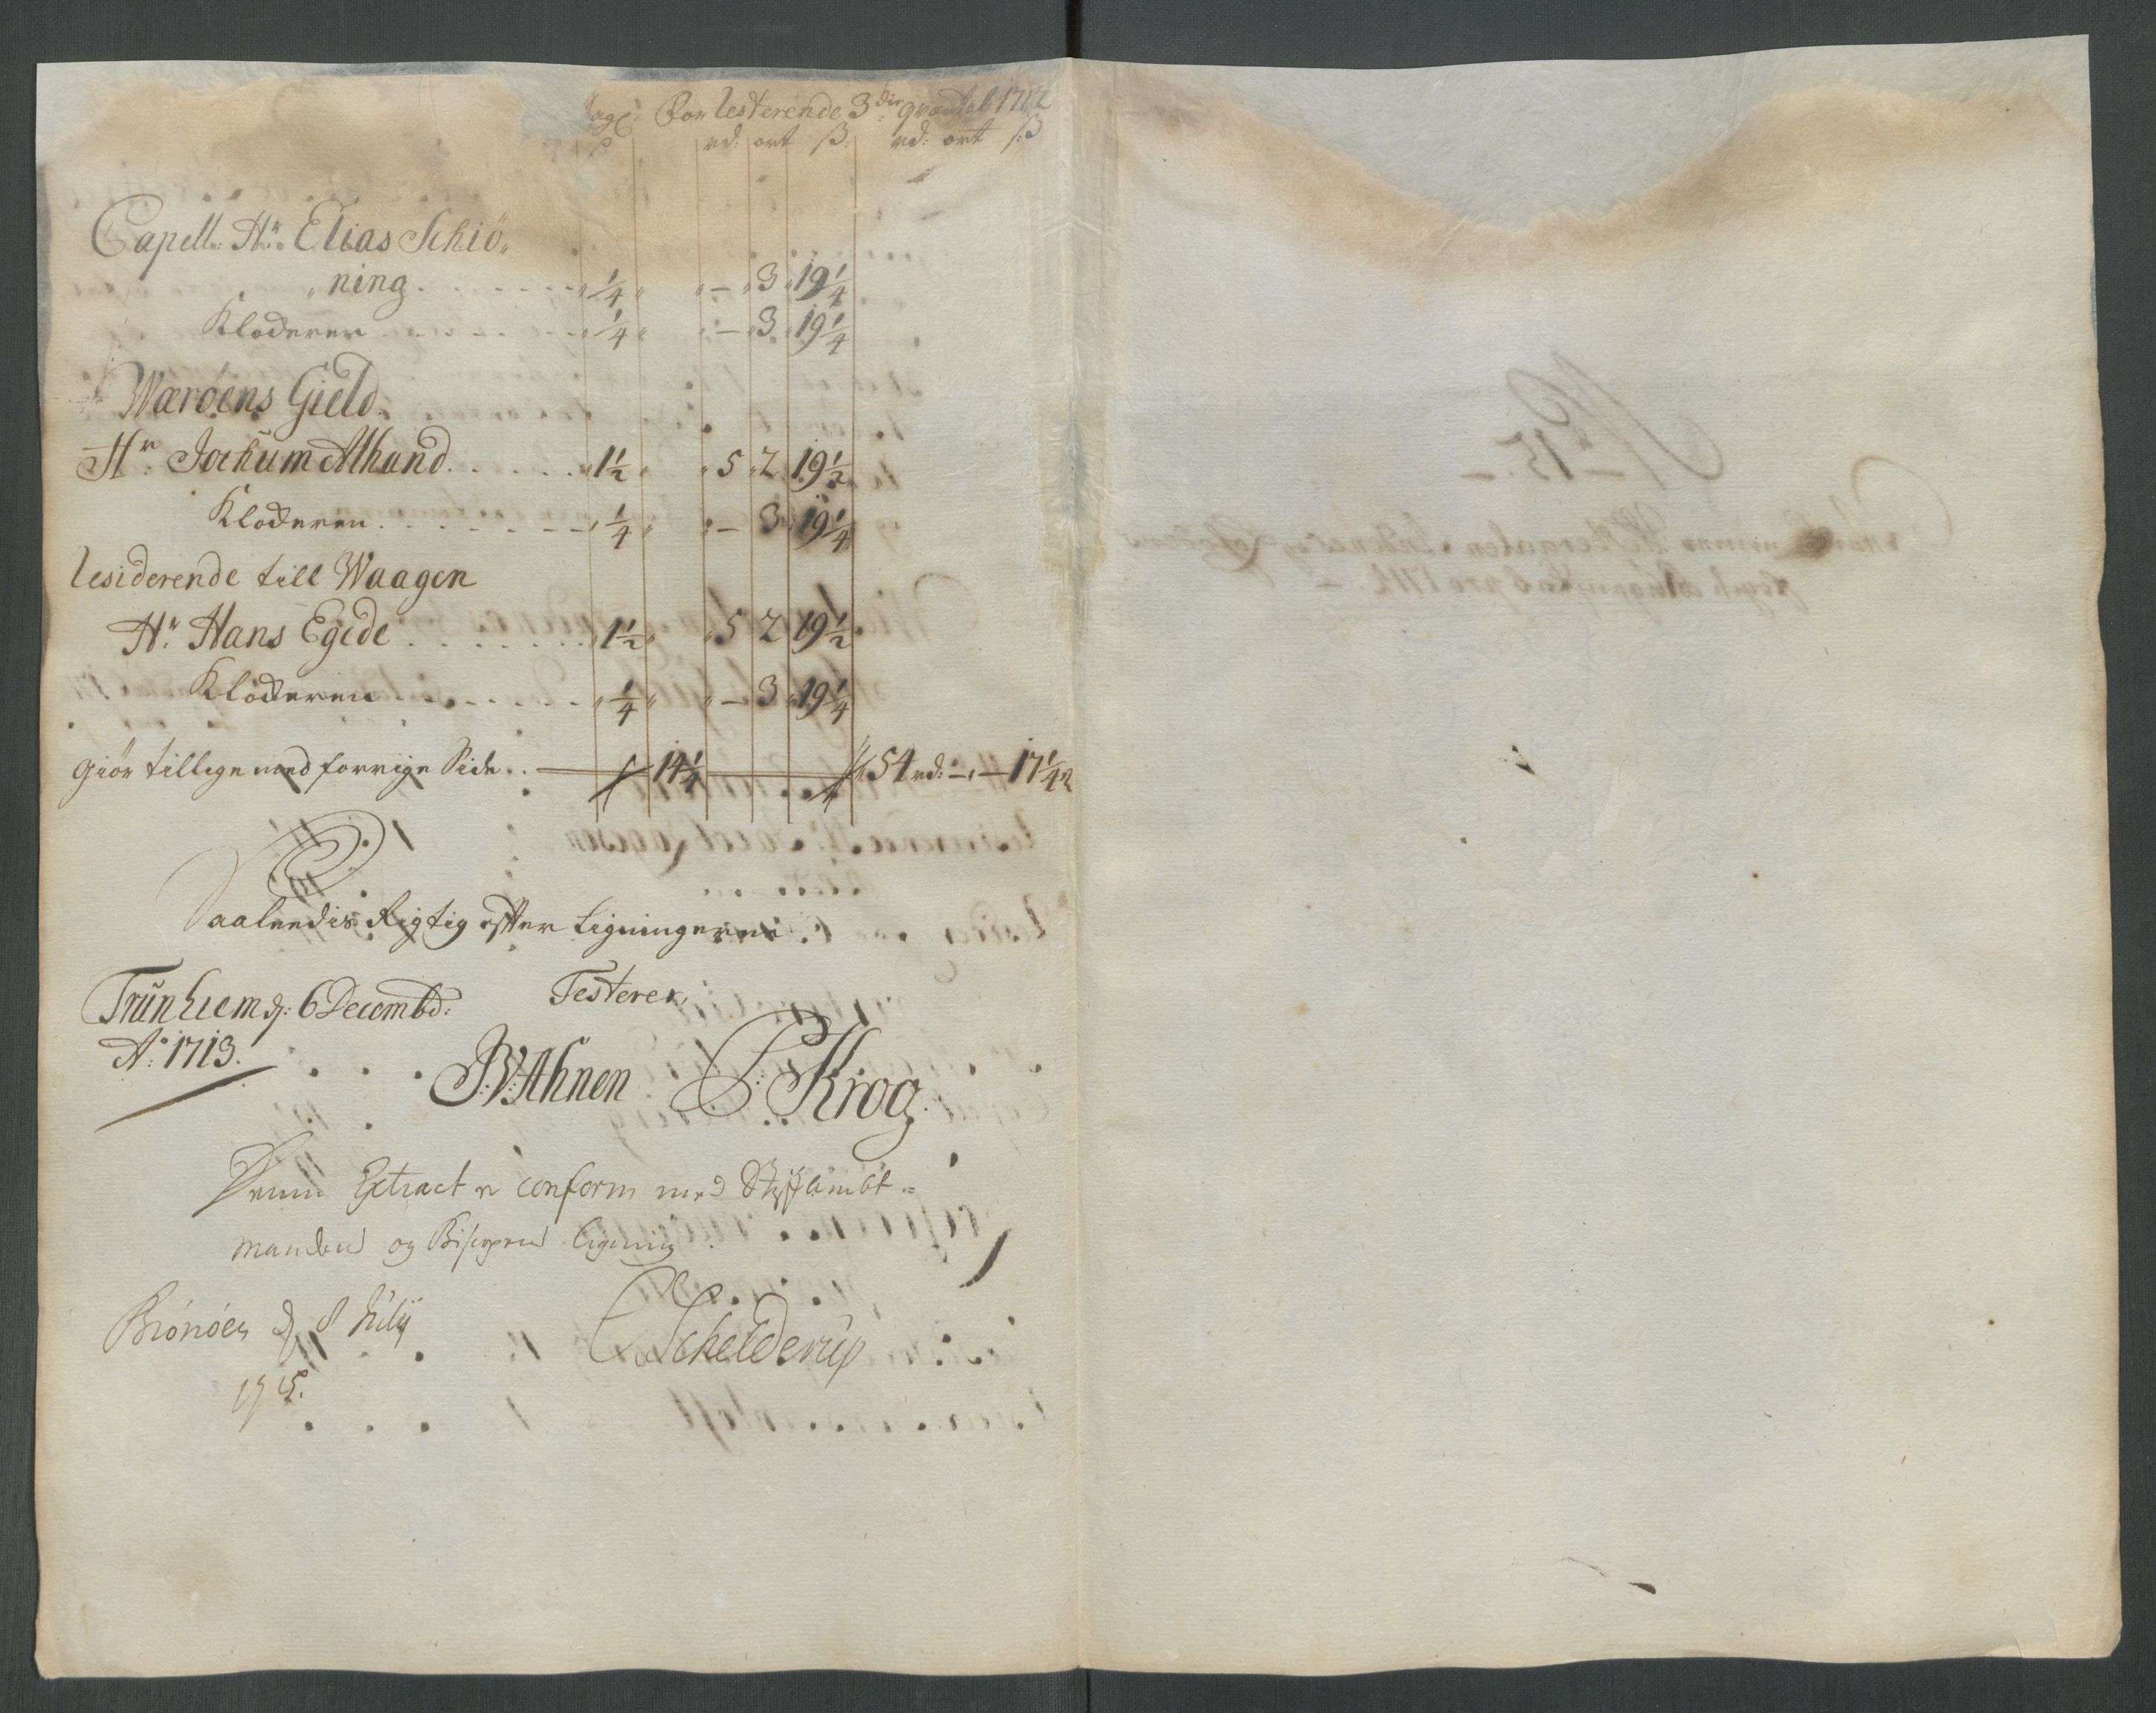 lagℓ: For Resterende 3die qvartal 1712
rd: ort ß: rd: ort ß
Capell: Hr: Elias Schiö„
„ning . . . . . . „ 1/4 „ „ — „ 3 „ 19 1/4
Klocheren . . . . . . „ 1/4 „ „ — „ 3 „ 19 1/4
Wæröens Gield.
Hr: Jochum Alhand . . . . . „ 1 1/2 „ „ 5 „ 2 „ 19 1/2
Klocheren . . . . . . . „ 1/4 „ „ — 3 „ 19 1/4
Residerende till Waagen
Hr: Hans Egede . . . . . . . „ 1 1/2 „ „ 5 2 19 1/2
Klocheren . . . . . . . „ 1/4 „ „ — 3 „ 19 1/4
Giör tillige med forrige Side . . — 14 1/4 — 54 rd: — „ — 17 1/4 ß
Saaledis Rigtig efter Ligningerne
Trünhiem d: 6 Decembr: Testerer
Ao: 1713.
J:V:Ahnen P: Krog.
Denne Extract er conform med Stiftambt=
mandens og Bispens Ligning
Brönöen d 8 Julij CSchelderup
1715.
No 15. —